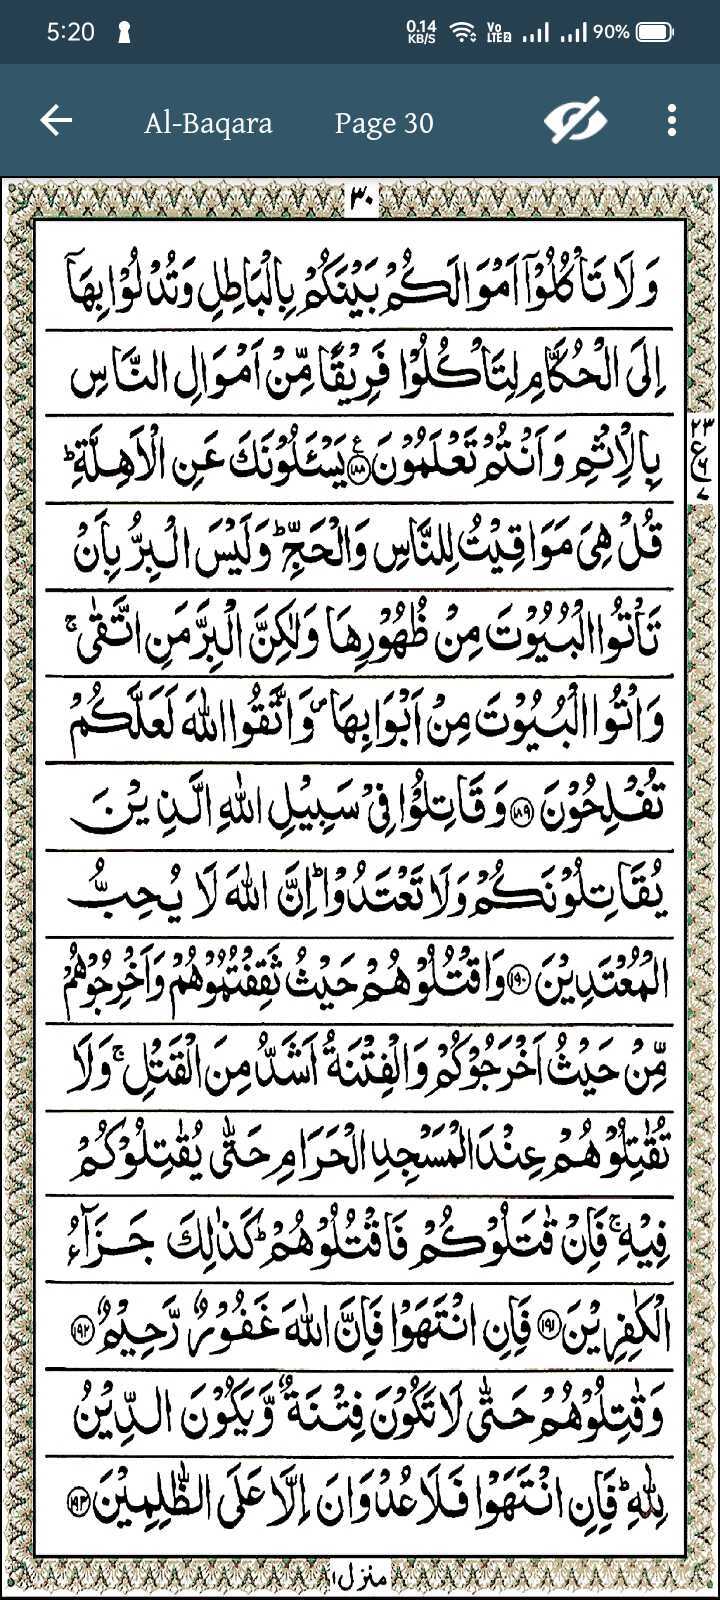 5:20 0.14 KB/S Vo LTE 2 90%
Al-Baqara Page 30
٣٠
وَلَا تَاْكُلُوْٓا اَمْوَالَكُمْ بَيْنَكُمْ بِالْبَاطِلِ وَتُدْلُوْا بِهَآ
اِلَى الْحُكَّامِ لِتَاْكُلُوْا فَرِيْقًا مِّنْ اَمْوَالِ النَّاسِ
بِالْاِثْمِ وَاَنْتُمْ تَعْلَمُوْنَ ع ١٨٨ يَسْـَٔلُوْنَكَ عَنِ الْاَهِلَّةِ ؕ
٢٣ ع ٦ ٧
قُلْ هِىَ مَوَاقِيْتُ لِلنَّاسِ وَالْحَجِّ ؕ وَلَيْسَ الْبِرُّ بِاَنْ
تَاْتُوا الْبُيُوْتَ مِنْ ظُهُوْرِهَا وَلٰكِنَّ الْبِرَّ مَنِ اتَّقٰى ۚ
وَاْتُوا الْبُيُوْتَ مِنْ اَبْوَابِهَا ۪ وَاتَّقُوا اللّٰهَ لَعَلَّكُمْ
تُفْلِحُوْنَ ١٨٩ وَقَاتِلُوْا فِىْ سَبِيْلِ اللّٰهِ الَّذِيْنَ
يُقَاتِلُوْنَكُمْ وَلَا تَعْتَدُوْا ؕ اِنَّ اللّٰهَ لَا يُحِبُّ
الْمُعْتَدِيْنَ ١٩٠ وَاقْتُلُوْهُمْ حَيْثُ ثَقِفْتُمُوْهُمْ وَاَخْرِجُوْهُمْ
مِّنْ حَيْثُ اَخْرَجُوْكُمْ وَالْفِتْنَةُ اَشَدُّ مِنَ الْقَتْلِ ۚ وَلَا
تُقٰتِلُوْهُمْ عِنْدَ الْمَسْجِدِ الْحَرَامِ حَتّٰى يُقٰتِلُوْكُمْ
فِيْهِ ۚ فَاِنْ قٰتَلُوْكُمْ فَاقْتُلُوْهُمْ ؕ كَذٰلِكَ جَزَآءُ
الْكٰفِرِيْنَ ١٩١ فَاِنِ انْتَهَوْا فَاِنَّ اللّٰهَ غَفُوْرٌ رَّحِيْمٌ ١٩٢
وَقٰتِلُوْهُمْ حَتّٰى لَا تَكُوْنَ فِتْنَةٌ وَّيَكُوْنَ الدِّيْنُ
لِلّٰهِ ؕ فَاِنِ انْتَهَوْا فَلَا عُدْوَانَ اِلَّا عَلَى الظّٰلِمِيْنَ ١٩٣
منزل ١